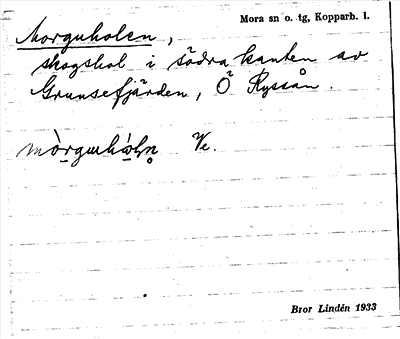 Mora sn o. tg, Kopparb. l.
Morguholen,
skogshol i södra kanten av
Grunsefjärden, Ö Ryssån.
Ve.
Bror Lindén 1933